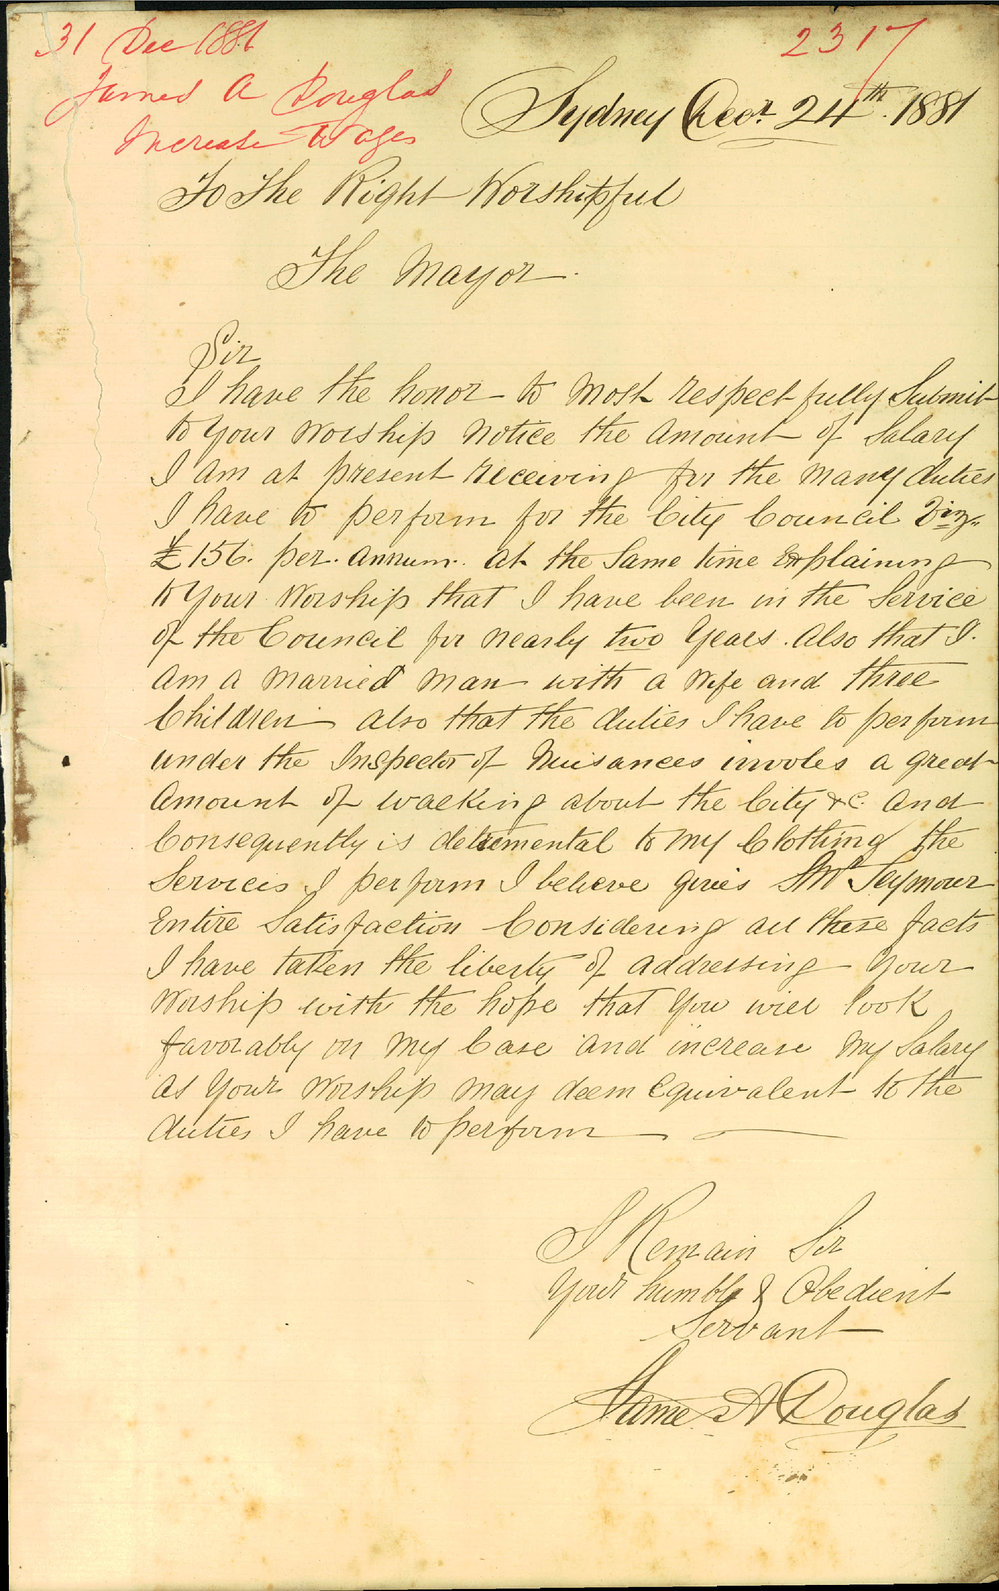 31 Dec 1881
2317
James A Douglas
Increase Wages
Sydney Decr. 24th. 1881
To The Right Worshipful
The Mayor.
Sir
I have the honor to most respectfully Submit
to your Worship notice the Amount of Salary
I am at present receiving for the many duties
I have to perform for the City Council Viz.
£156. per. annum. at the same time Explaining
to your Worship that I have been in the Service
of the Council for nearly two years. Also that I.
am a married man with a wife and three
Children also that the duties I have to perform
under the Inspector of Nuisances involes a great
Amount of walking about the City &c. and
Consequently is detremental to my Clothing the
Services I perform I believe gives Mr Seymour
Entire Satisfaction Considering all these facts
I have taken the liberty of addressing your
Worship with the hope that you will look
favorably on my Case and increase my Salary
as your Worship may deem equivalent to the
duties I have to perform
I Remain Sir
Your humble & Obedient
Servant
James A Douglas